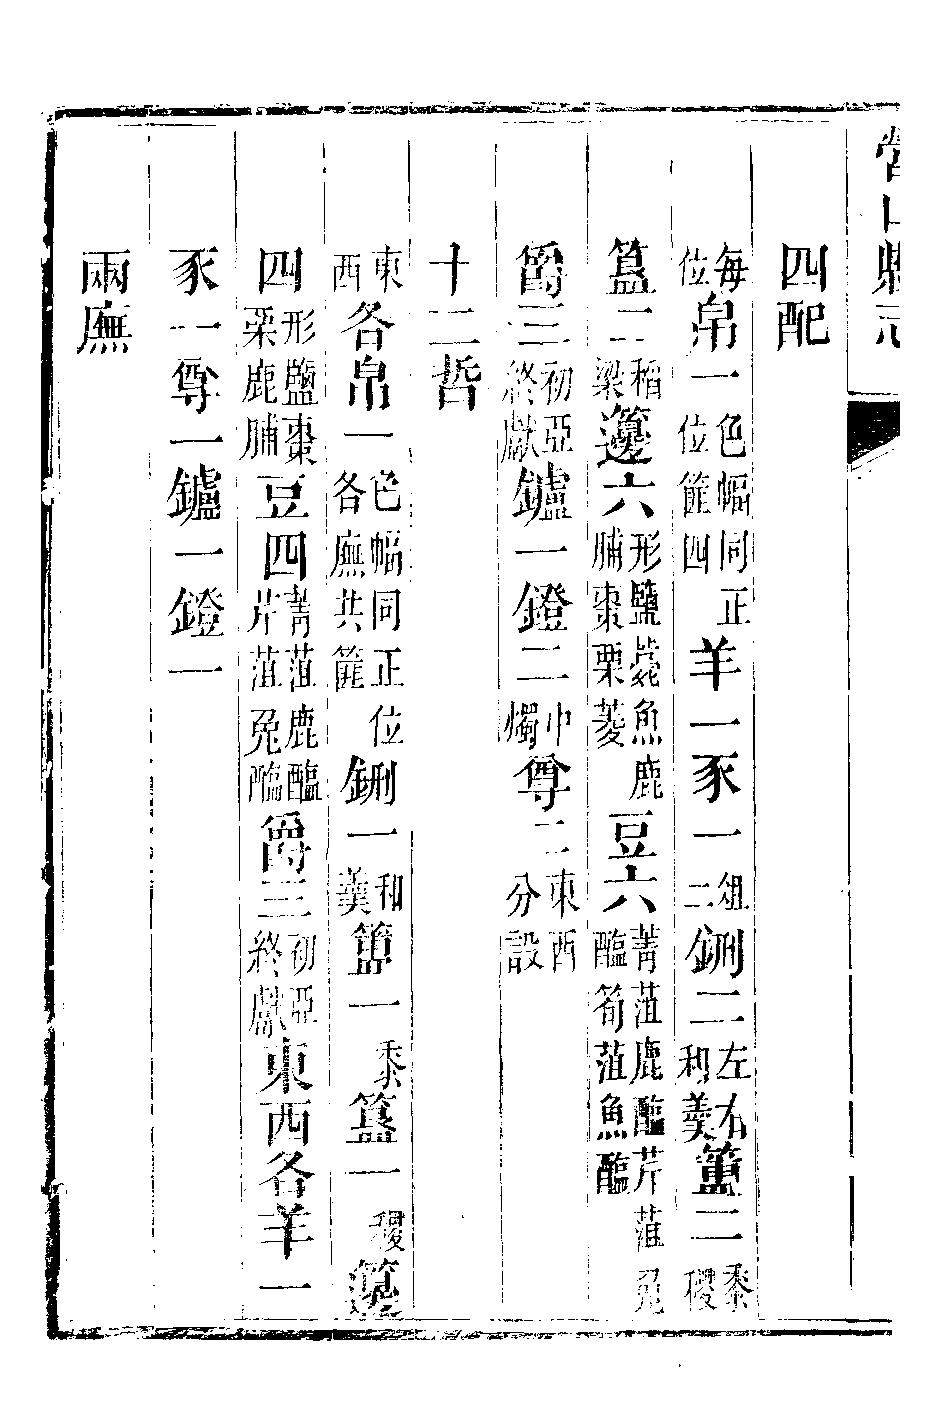 營山縣志
四配
每位帛一色幅同正位篚四羊一豕一俎二鉶二左右和羹簠二黍稷
簋二稻粱籩六形鹽薨魚鹿脯棗栗菱豆六菁菹鹿醢芹菹兔醢筍菹魚醢
爵三初亞終獻鑪一鐙二中燭尊二東西分設
十二哲
東西各帛一色幅同正位各廡共篚鉶一和羹簠一黍簋一稷籩
四形鹽棗栗鹿脯豆四菁菹鹿醢芹菹兔醢爵三初亞終獻東西各羊一
豕一尊一鑪一鐙一
兩廡